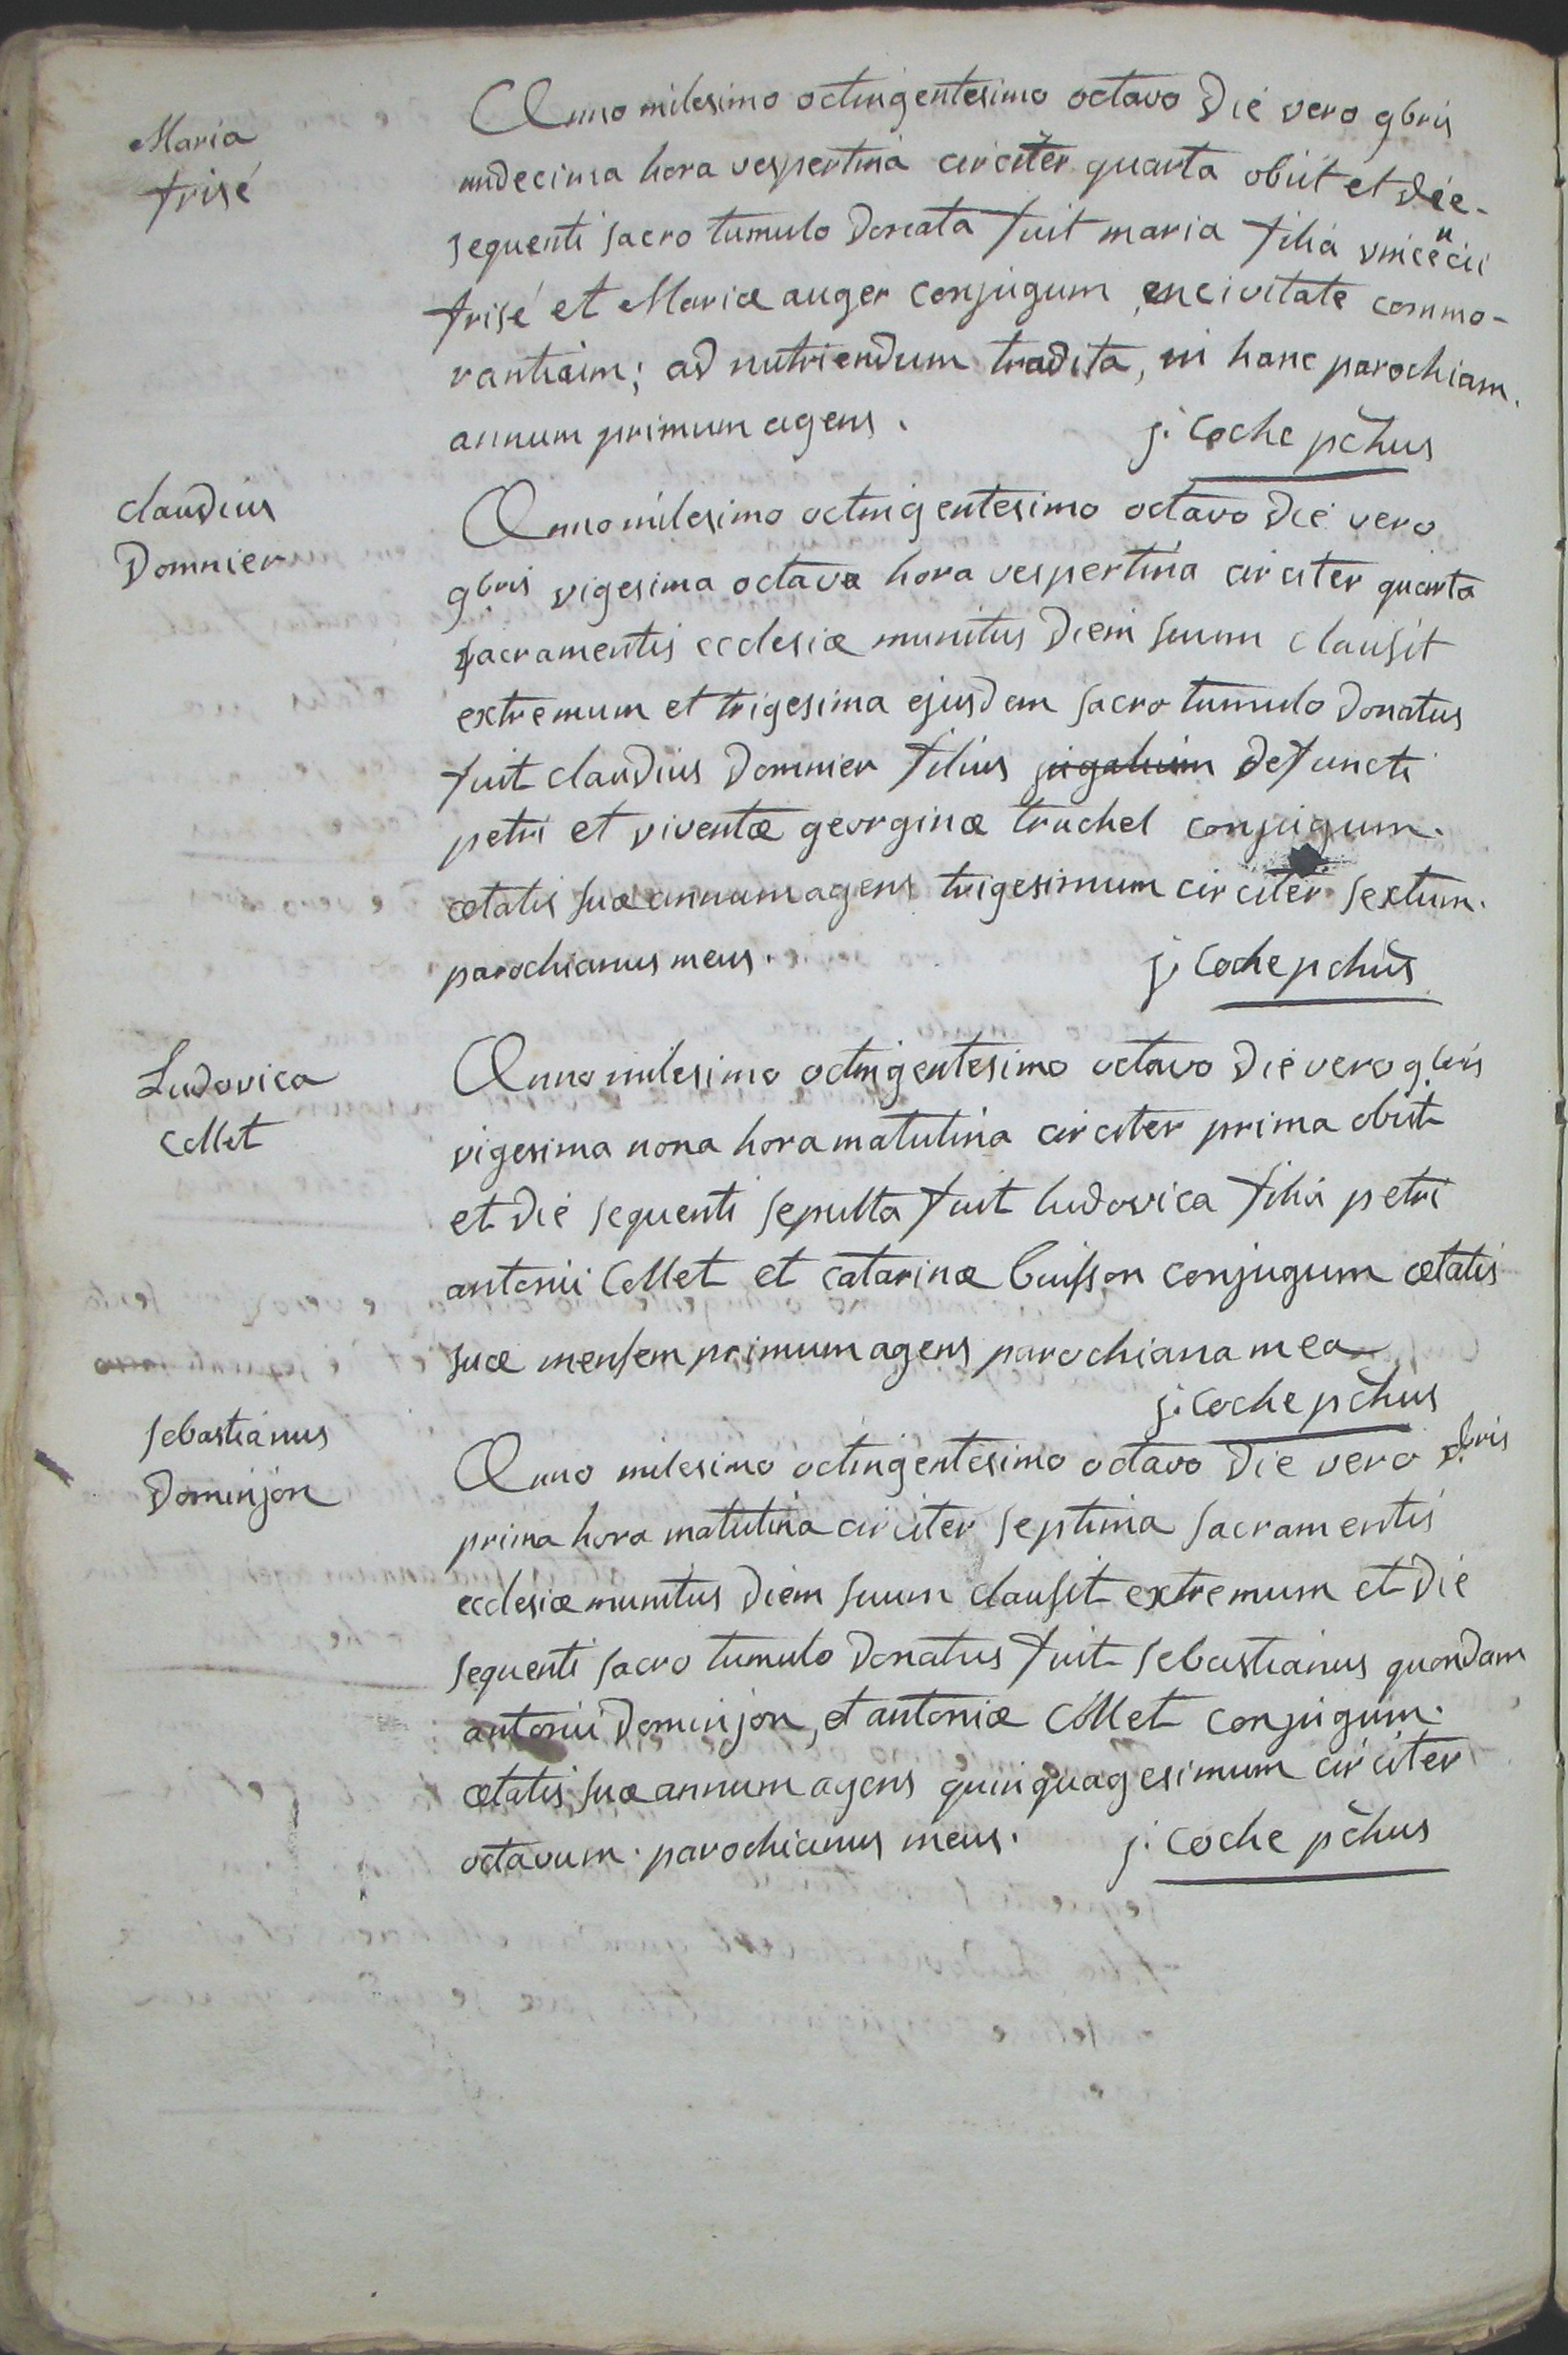 Maria
frisé
Anno milesimo octingentesimo octavo Die vero 9bris
undecima hora vespertina circiter quarta obiit et die
sequenti sacro tumulo donata fuit maria filia vincencii
frisé et Mariæ auger conjugum, en civitate commo-
rantium; ad nutriendum tradita, in hanc parochiam.
annum primum agens.
j. Coche pchus
claudius
Domnier
Anno milesimo octingentesimo octavo Die vero
9bris vigesima octava hora vespertina circiter quarta
sacramentis ecclesiæ munitus Diem suum clausit
extremum et trigesima ejusdem sacro tumulo Donatus
fuit claudius Domnier filius defuncti
petri et viventæ georginæ truchel conjugum.
ætatis suæ annum agens trigesimum circiter sextum.
parochianus meus.
j. Coche pchus
Ludovica
Collet
Anno milesimo octingentesimo octavo Die vero 9bris
vigesima nona hora matutina circiter prima obiit
et Die sequenti sepulta fuit ludovica filia petri
antonii Collet et catarinæ buisson conjugum ætatis
suæ mensem primum agens parochiana mea
j. Coche pchus
sebastianus
Dominjon
Anno milesimo octingentesimo octavo Die vero Xbris
prima hora matutina circiter septima sacramentis
ecclesiæ munitus Diem suum clausit extremum et Die
sequenti sacro tumulo Donatus fuit sebastianus quondam
antonii Dominjon, et antoniæ Collet conjugum.
ætatis suæ annum agens quinquagesimum circiter
octavum. parochianus meus.
j. Coche pchus